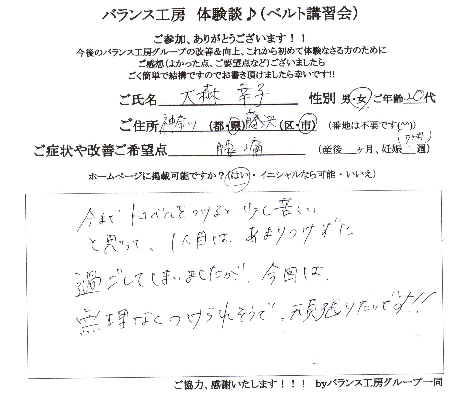 バランス工房 体験談♪(ベルト講習会)
ご参加、ありがとうございます!!
今後のバランス工房グループの改善&向上、これから初めて体験なさる方のために
ご感想(よかった点、ご要望点など)ございましたら
ごく簡単で結構ですのでお書き頂けましたら幸いです!!
ご氏名 大森 幸子 性別 男・女 ご年齢 20代
ご住所 神奈川 (都・県) 藤沢 (区・市) (番地は不要です(^^))
ご症状や改善ご希望点 腰痛 (産後 ヶ月、妊娠 週)
ホームページに掲載可能ですか?(はい・イニシャルなら可能・いいえ)
今までトコベルトをつけると少し苦しい
と思って、1人目は、あまりつけずに
過ごしてしまいましたが、今回は、
無理なくつけられそうで、頑張りたいです!!
ご協力、感謝いたします!!! byバランス工房グループ一同